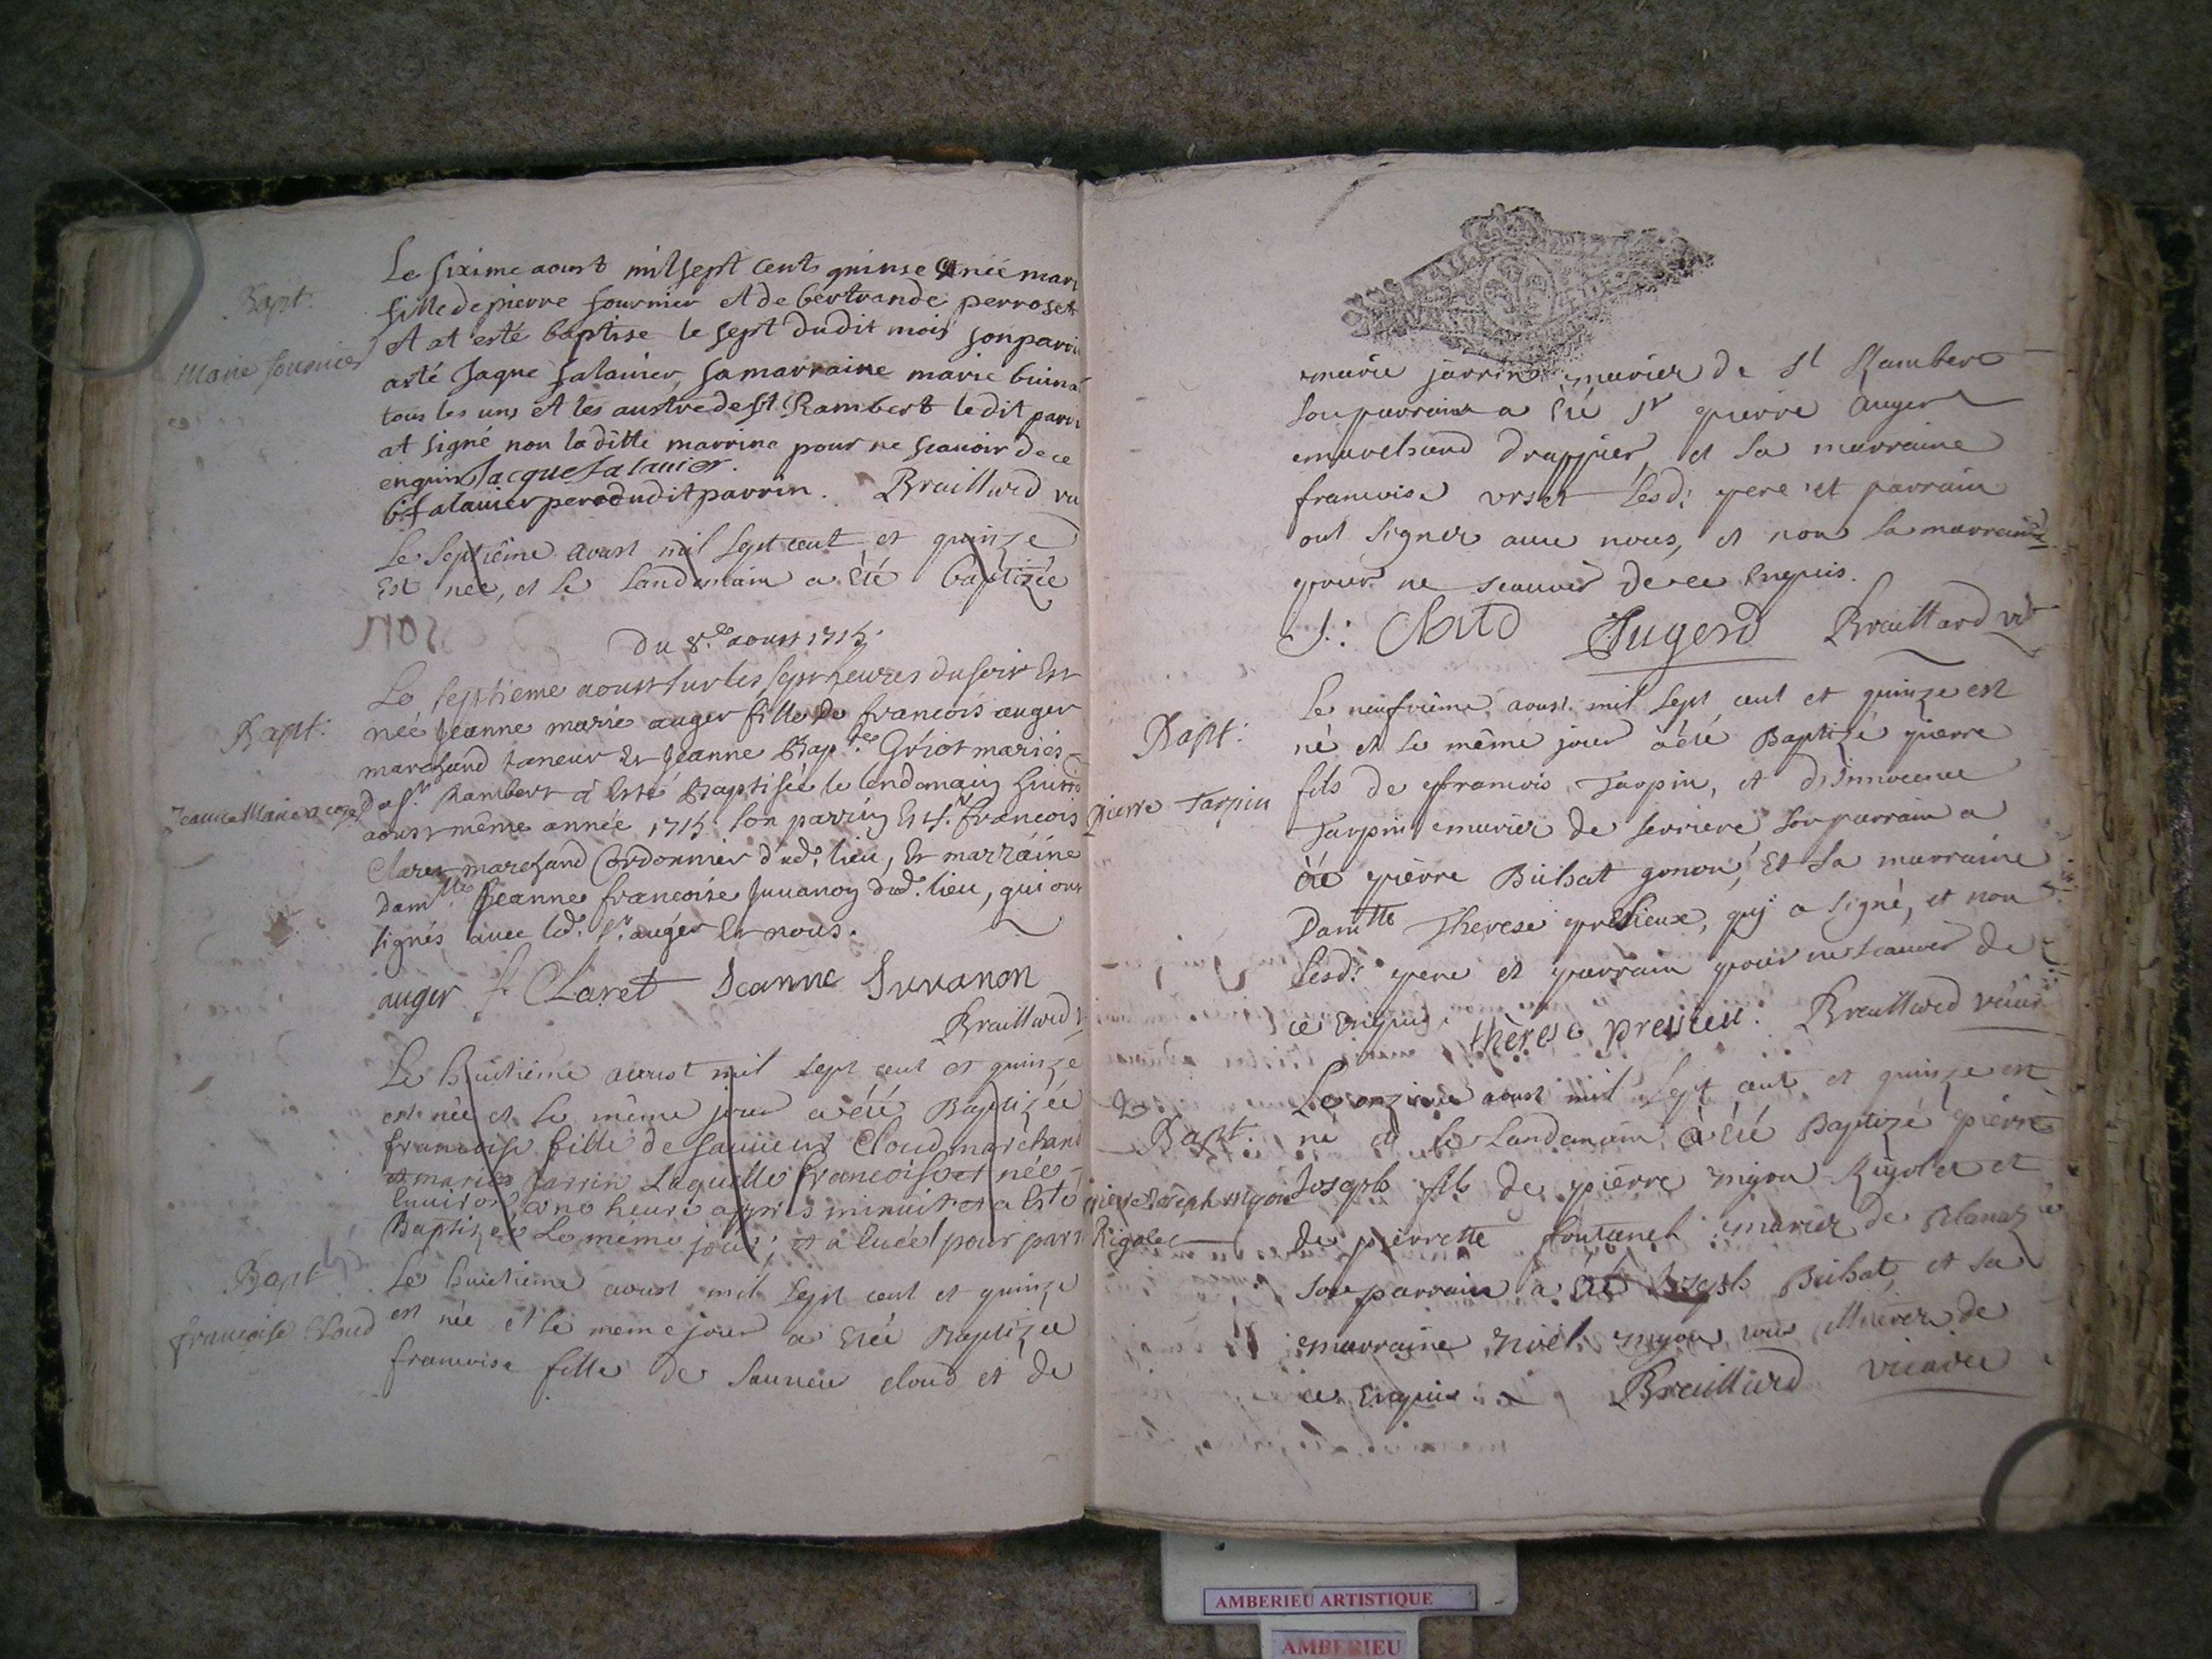 Bapt.
Marie fournier
Le sixime aoust mil sept cents quinse est née mari
fille de pierre fournier et de bertrande perroset
et at esté baptise le sept dudit mois son parri
a eté Jaque falavier, sa marraine marie
tous les uns et les austre de st Rambert le dit parri
at signé non la ditte marrine pour ne scavoir de ce
enquis Jacque falavier.
falavier pere dudit parrin. Braillard
Le septième aoust mil sept cent et quinze
Est née, et le landemain a été baptizée
Du 8.e aoust 1715.
Bapt.
Jeanne Marie auger
Le septieme aoust sur les sept heures du soir Est
née Jeanne marie auger fille de francois auger
marchand taneur et Jeanne Bap.te Griot mariés
de st. Rambert a esté Baptisée le lendemain huit
aoust même année 1715. Son parrin Est sr. francois
Claret marchand Cordonnier dud. lieu, Et marraine
dam.lle Jeanne francoise Juvanon dud. lieu, qui ont
signés avec led. sr. auger Et nous.
auger f. Claret Jeanne Juvanon
Braillard
Le huitième aoust mil sept cent et quinze
est née et le même jour a été Baptizée
francoise fille de sauveur Cloud marchand
et marie Jarrin Laquelle francoise est née
Environ une heure apres minuit et a Esté
Baptizée Le même jour, et a pour parr
Bapt
francoise Cloud
Le huitieme aoust mil sept cent et quinze
est née et le meme jour a été Baptizée
francoise fille de sauveur cloud et de
marie jarrin mariez de st Rambert
son parrain a été sr pierre Auger
marchand drappier et sa marraine
francoise lesd: pere et parrain
ont signer avec nous, et non la marraine
pour ne scavoir de ce Enquis.
S: Cloud Augerd Braillard
Bapt:
pierre Tarpin
Le neufvième aoust mil sept cent et quinze est
né et le même jour a été Baptizé pierre
fils de francois Tarpin, et d'innocence
Tarpin mariez de serriere son parrain a
été pierre Buhat gonon, Et sa marraine
Damlle Therese presieux, quj a signé, et non
lesd: pere et parrain pour ne scavoir de
ce Enquis. thèrese presieu. Braillard vicaire
Bapt.
pierre Joseph myon
Rigolet
Le onzième aoust mil sept cent et quinze est
né et le landemain a été Baptizé pierre
Joseph fils de pierre myon Rigolet et
de pierrette fontanel mariez de Blanaz
son parrain a été Joseph Buhat, et sa
marraine myon illiterez de
ce Enquis. Braillard vicaire
AMBERIEU ARTISTIQUE
AMBERIEU